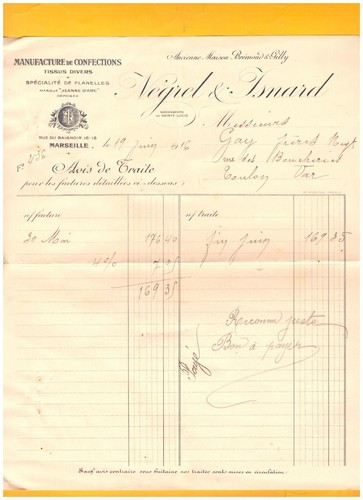 Ancienne Maison Brémond & Gilly
MANUFACTURE DE CONFECTIONS
TISSUS DIVERS
SPÉCIALITÉ DE FLANELLES
MARQUE "JEANNE D'ARC"
DÉPOSÉE
Négrel & Isnard
RUE DU BAIGNOIR 16-18
MARSEILLE, le 19 Juin 1916
Messieurs
Gay frères
rue des Boucheries
Toulon Var
Avis de Traite
pour les factures détaillées ci-dessous
n/ facture
n/ traite
30 Mai 176 40 fin juin 169 35
4% 7 05
169 35
Reconnu juste
Bon à payer
Payé
Sauf avis contraire sous huitaine nos traites sont mises en circulation.